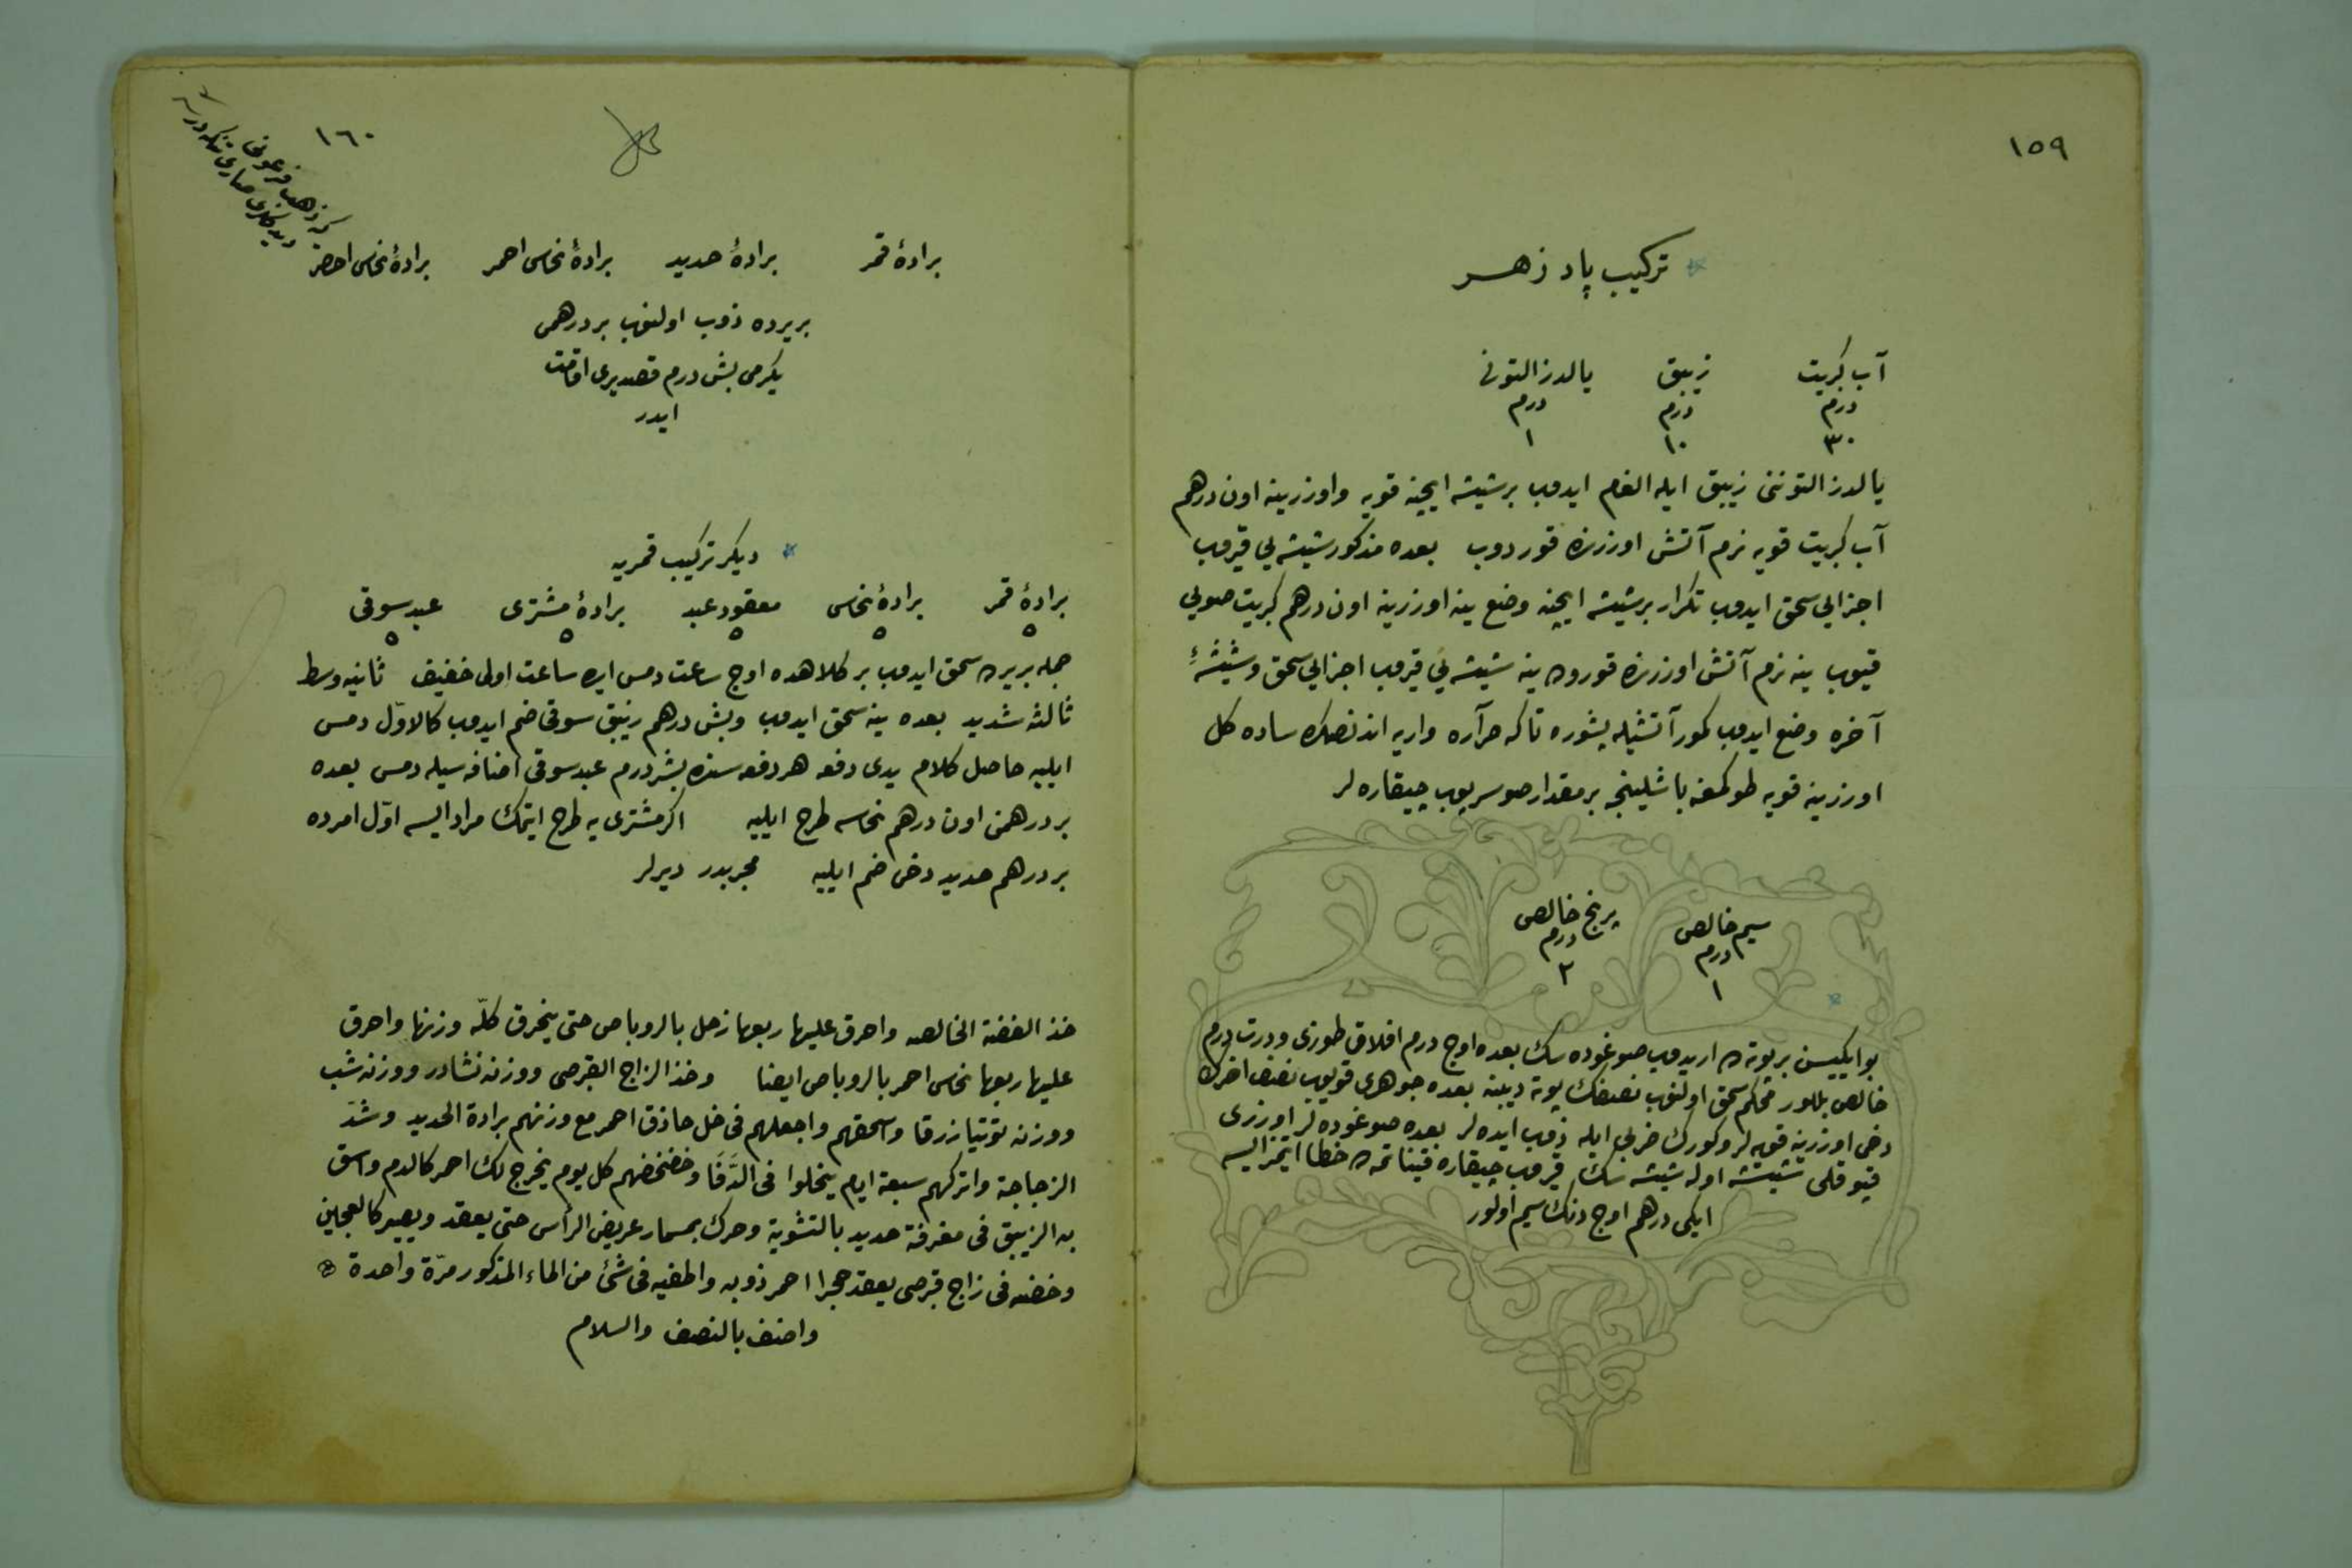 ١٥٩
تركيب پاد زهر
آب كبريت زيبق يالدز التونى
درم درم درم
٣٠ ١٠ ١
يالدز التوننى زيبق ايله الغام ايدوب بر شيشه ايچينه قويه واوزرينه اون درهم
آب كبريت قويه نرم آتش اوزرنده قوردوب بعده مذكور شيشه يى قيروب
اجزايى سحق ايدوب تكرار بر شيشه ايچنه وضع ينه اوزرينه اون درهم كبريت صويى
قيوب ينه نرم آتش اوزرنده قوروده ينه شيشه يى قيروب اجزايى سحق و شيشۀ
آخره وضع ايدوب كور آتشيله پشوره تاكه حرآره واريه اندنصكره ساده كل
اوزرينه قويه طوكمغه باشلينجه بر مقدار صو سرپوب چيقاره لر
سيم خالص پرنج خالص
درم درم
١ ٢
بو ايكيسن بر پوته ده اريدوب صوغوده سك بعده اوچ درم افلاق طوزى ودرت درم
خالص بللور محكم سحق اولنوب نصفك پوته ديبنه بعده جوهرى قويوب نصف اخرك
دخى اوزرينه قويه لر وكورك ضربى ايله ذوب ايده لر بعده صوغوده لر اوزرى
قيو قلى شيشه اوله شيشه سك قيروب چيقاره قيناتمه ده خطا ايتمز ايسه
ايكى درهم اوچ دنك سيم اولور
١٦٠
برادۀ قمر برادۀ حديد برادۀ نحاس احمر برادۀ نحاس اصفر
بريرده ذوب اولنوب بر درهمى
يكرمى بش درم قصديرى اقامت
ايدر
ديكر تركيب قمريه
برادۀ قمر برادۀ نحاس معقود عبد برادۀ مشترى عبد سوقى
٥ ٥ ٥ ٥ ٥
جمله بريرده سحق ايدوب بر كلاهده اوچ ساعت دمس ايده ساعت اولى خفيف ثانيه وسط
ثالثه شديد بعده ينه سحق ايدوب وبش درهم زيبق سوقى ضم ايدوب كالاوّل دمس
ايليه حاصل كلام يدى دفعه هر دفعه سنده بشر درم عبد سوقى اضافه سيله دمس بعده
بر درهمن اون درهم نحاسه طرح ايليه اكر مشترى يه طرح ايتمك مراد ايسه اوّل امرده
بر درهم حديد دخى ضم ايليه مجربدر ديرلر
خذ الفضة الخالصه واحرق عليها ربعها زحل بالروباص حتى ينحرق كلّه وزنها واحرق
عليها ربعها نحاس احمر بالروباص ايضا وخذ الزاج القبرصى ووزنه نشادر ووزنه شب
ووزنه توتيا زرقا واسحقهم واجعلهم فى خل حاذق احمر مع وزنهم برادة الحديد وشدّ
الزجاجة واتركهم سبعة ايام ينحلوا فى الدَّفَا وخضخضهم كل يوم يخرج لك احمر كالدم واسق
به الزيبق فى مغرفة حديد بالتشوية وحرك بمسمار عريض الرأس حتى يعقد ويصير كالعجين
وخضه فى زاج قبرصى يعقد حجرا احمر ذوبه واطفيه فى شئ من الماء المذكور مرّة واحدة
واضف بالنصف والسلام